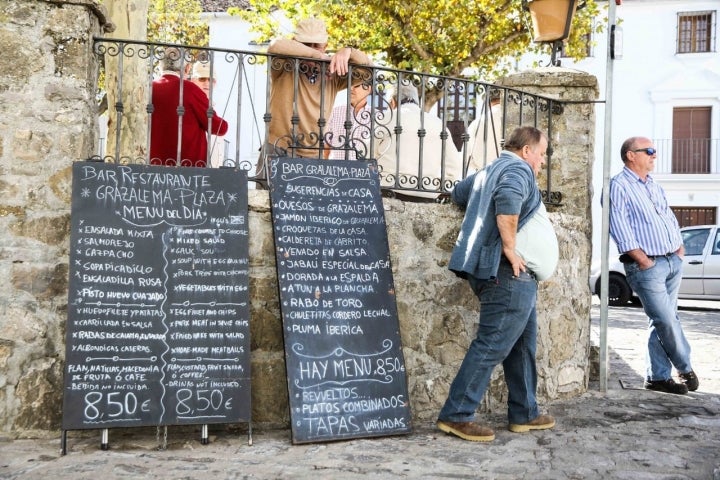 BAR RESTAURANTE
GRAZALEMA-PLAZA
MENU DEL DÍA
ENSALADA MIXTA
SALMOREJO
GAZPACHO
SOPA PICADILLO
ENSALADILLA RUSA
PISTO HUEVO CUAJADO
HUEVO FRITE Y PATATAS
CARRILLADA EN SALSA
ALBONDIGAS CASERAS
FLAN, NATILLAS, MACEDONIA
DE FRUTA Ó CAFE
BEBIDA NO INCLUIDA
8,50 €
3 COURSE MENU
TO CHOOSE:
MIXED SALAD
SOUP WITH EGG
VEGETABLES WITH EGG
EGG FRIET AND CHIPS
PORK MEAT IN SAUCE
HOME-MADE MEATBALLS
FLAN
OR COFFEE
DRINKS NOT INCLUDED
8,50€
BAR GRAZALEMA PLAZA
SUGERENCIAS DE CASA
QUESOS DE GRAZALEMA
JAMON IBERICO DE GRAZALEMA
CROQUETAS DE LA CASA
CALDERETA DE CABRITO
VENADO EN SALSA
JABALI ESPECIAL DE CASA
DORADA A LA ESPALDA
ATUN A LA PLANCHA
RABO DE TORO
CHULETITAS CORDERO LECHAL
PLUMA IBERICA
HAY MENU 8,50€
REVUELTOS...
PLATOS COMBINADOS
TAPAS VARIADAS